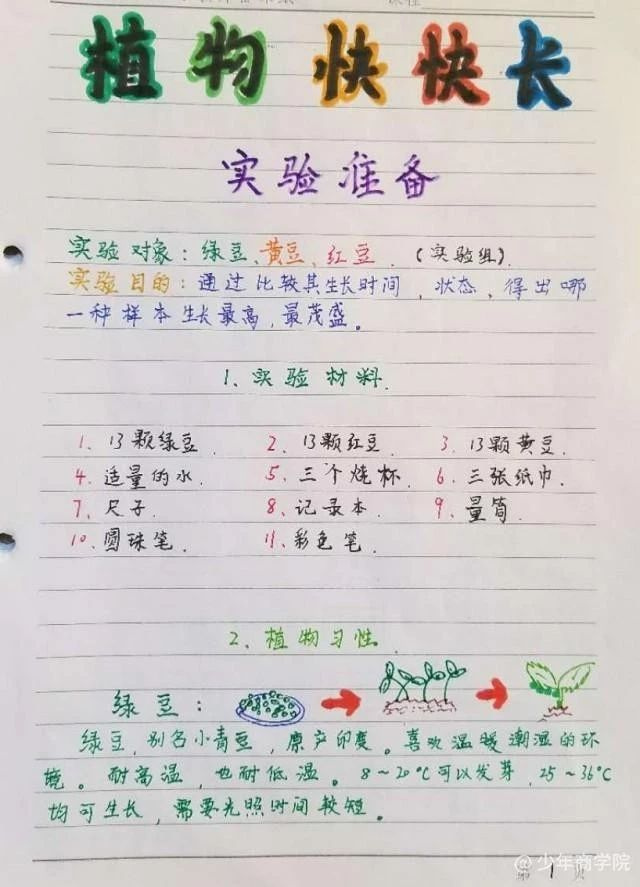 植物快快长
实验准备
实验对象：绿豆、黄豆、红豆.（实验组).
实验目的：通过比较其生长时间，状态，得出哪
一种样本生长最高，最茂盛。
1、实验材料.
1、13颗绿豆. 2、13颗红豆. 3、13颗黄豆.
4、适量的水. 5、三个烧杯. 6、三张纸巾.
7、尺子. 8、记录本. 9、量筒.
10、圆珠笔. 11、彩色笔.
2、植物习性.
绿豆：
绿豆，别名小青豆，原产印度。喜欢温暖潮湿的环
境。耐高温，也耐低温。8～20℃可以发芽，25～36℃
均可生长，需要光照时间较短.
第 1 页
@少年商学院